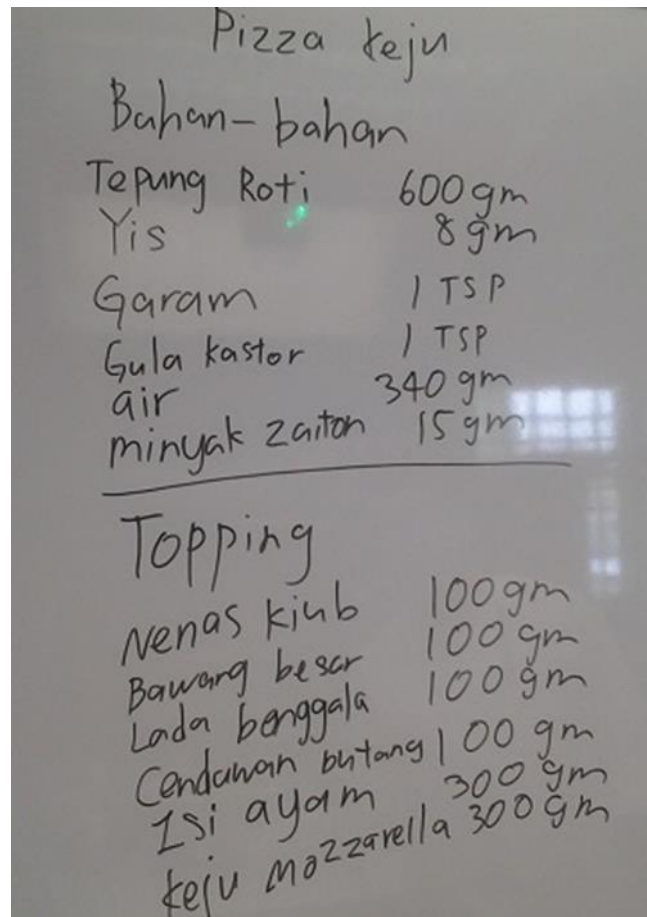 Pizza keju
Bahan-bahan
Tepung Roti 600 gm
Yis 8 gm
Garam 1 TSP
Gula kastor 1 TSP
air 340 gm
minyak zaiton 15 gm
Topping
Nenas kiub 100 gm
Bawang besar 100 gm
Lada benggala 100 gm
Cendawan butang 100 gm
Isi ayam 300 gm
keju mozzarella 300 gm